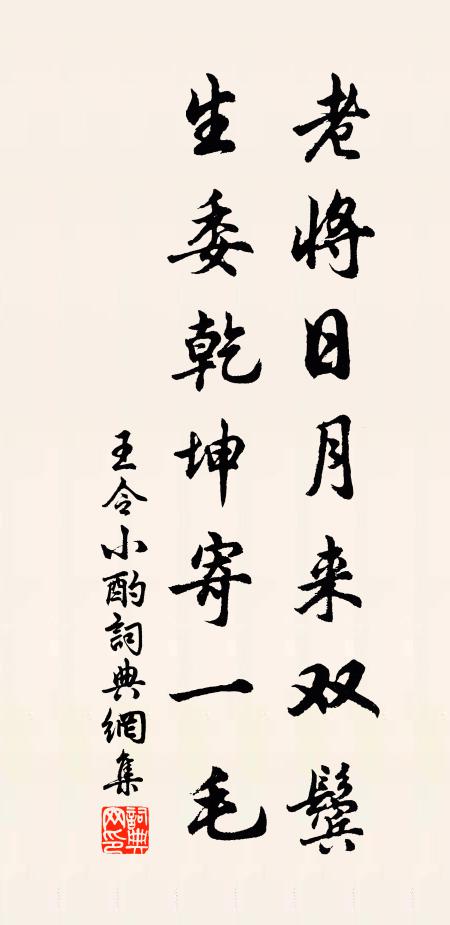 老将日月来双鬓
生委乾坤寄一毛
王令小酌詞典網集
詞典網印